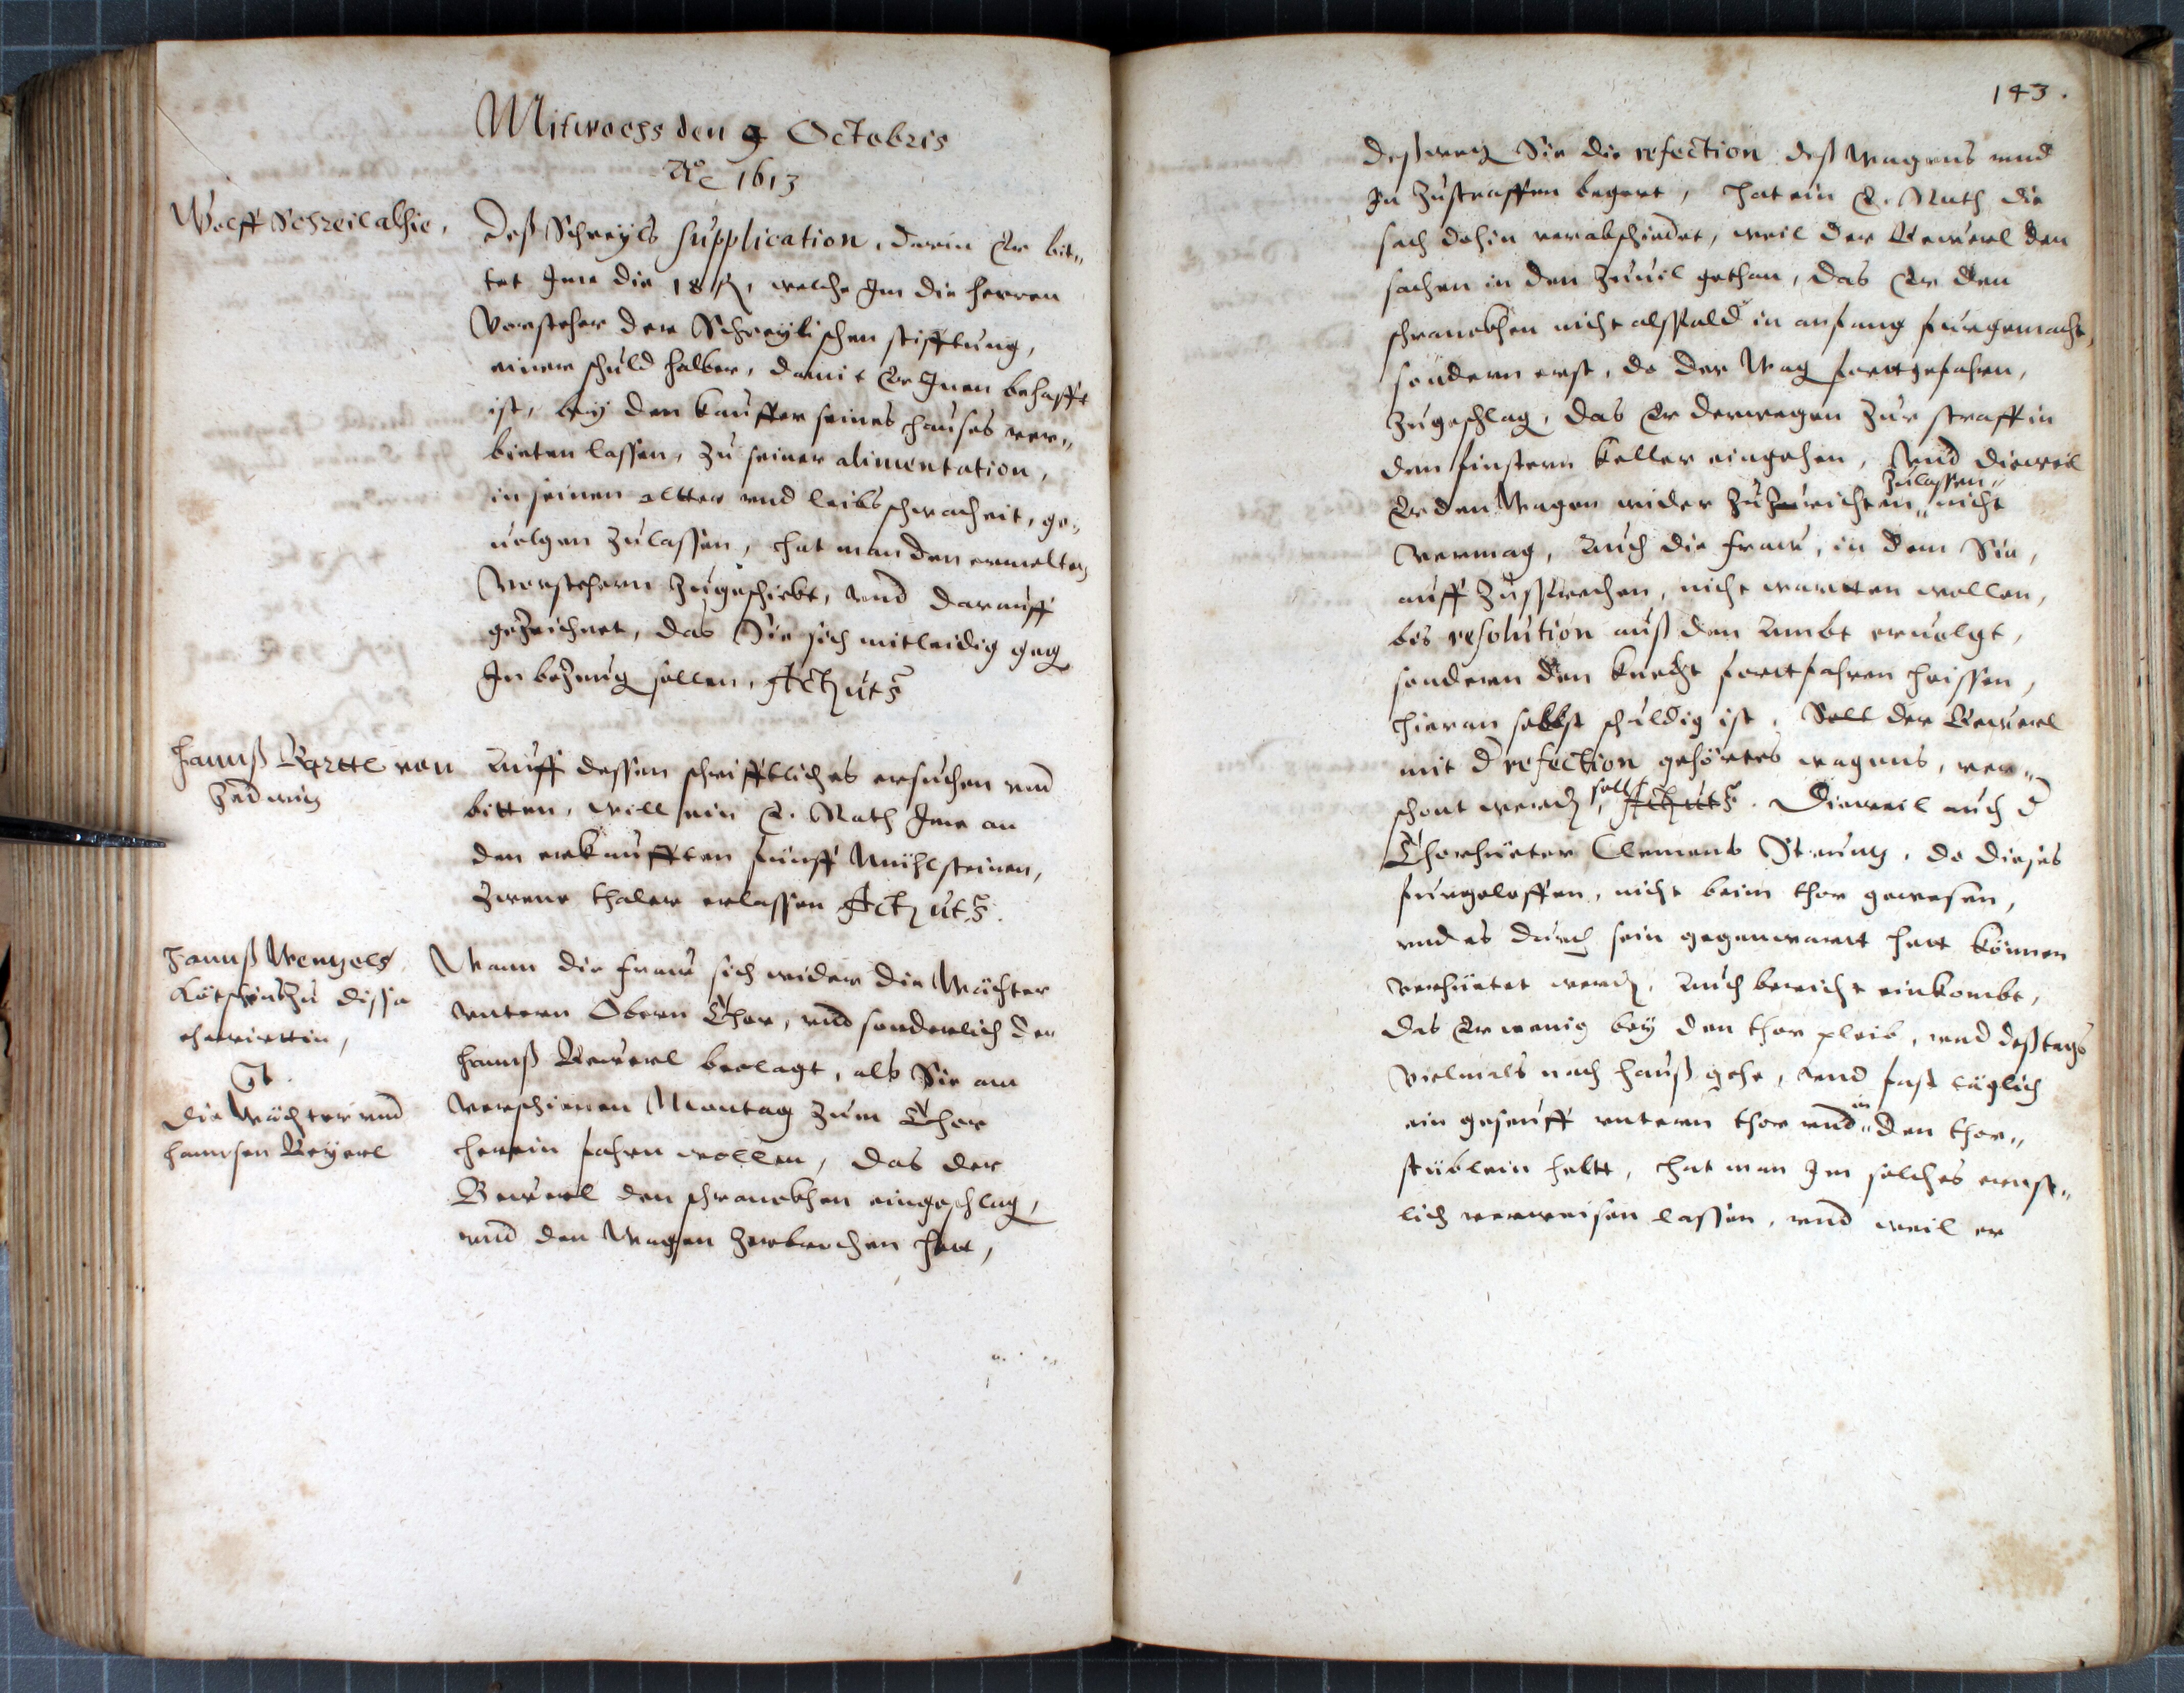 Mitwochs den 9 Octobris
Aō 1613
Wolff Schreil alhie,
Deß Schreyls supplication, darin Er bit„
tet Ime die 18 fl, welche Im die herren
Vorsteher der Schreylischen stifftung,
einer schuld halber, damit Er Inen behafft
ist, bey dem kauffer seines hauses ver„
bieten lassen, zu seiner alimentation,
in seinen altter und leibsschwacheit, ge„
uolgen zulassen, hat man den ermelten
Vorstehern zugeschickt, und darauff
gezeichnet, das Sie sich mitleidig geg
In bezeug sollen, Act ut s
Hannß Barttl von
Auff dessen schrifftliches ersuchen und
bitten, will ein E. Rath Ime an
den erkaufften fünff Mühlsteinen,
zwene thaler erlassen Act ut s.
Hannß Wentzels
zu
ehewirttin,
Ct.
die Wächter und
hannsen Beyerl
Wann die fraw sich wider die Wächter
vnterm Obern Thor, und sonderlich den
hannß Beyerl beclagt, als Sie am
verschienen Montag zum Thor
herein fahren wollen, das der
Beyerl den schranckhen eingeschlag,
und den Wagen zerbrochen hett,
143.
deßweg Sie die refection deß Wagens und
In zustraffen begert, hat ein E. Rath die
sach dahin verabschiedet, weil der Beyerl den
sachen in den zuuil gethan, das Er den
schranckhen nicht alspald in anfang furgemacht,
sondern erst, da der Wag fortgefahren,
zugeschlag, das Er derwegen zur straff in
den finstern keller eingehen, Und dieweil
Er den Wagen wider zuzurichten „zulassen„ nicht
vermag, Auch die fraw, in dem Sie,
auff zusprechen, nicht wartten wollen,
bis resolution auß den Ambt eruolgt,
sondern den knecht fortfahren heissen,
hieran selbst schuldig ist, Soll der Beyerl
mit d refection gehörtes wagens, ver„
schont werd, soll Act ut s. Dieweil auch d
Thorhüeter Clemens, da dieses
furgeloffen, nicht beim thor gewesen,
und es durch sein gegenwart hett können
verhüetet werd, Auch bericht einkombt,
das Er wenig bey den thor pleib, und deß tags
vielmals nach hauß gehe, und fast täglich
ein gesauff vnterm thor und „in den thor„
stüblein heltt, hat man Im solches ernst„
lich verweisen lassen, und weil er